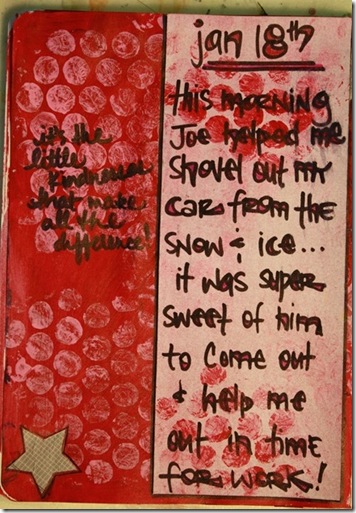 it's the
little
kindnesses
that make
all the
difference!
jan 18th
this morning
Joe helped me
shovel out my
car from the
snow & ice...
it was super
sweet of him
to come out
& help me
out in time
for work!